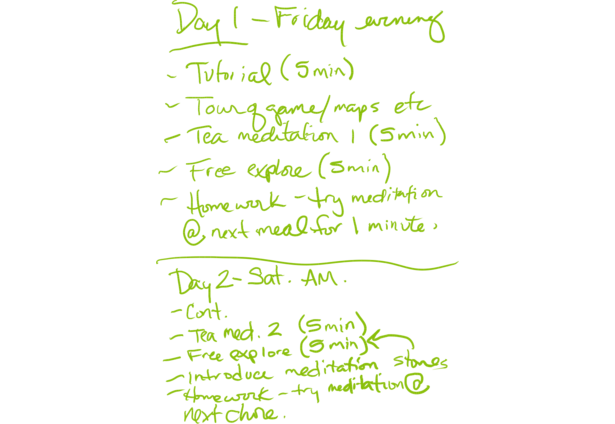 Day 1 - Friday evening
- Tutorial (5 min)
- Tour of game/maps etc
- Tea meditation 1 (5 min)
- Free explore (5 min)
- Homework - try meditation
@ next meal for 1 minute.
Day 2 - Sat. AM.
- Cont.
- Tea med. 2 (5 min)
- Free explore (5 min)
- Introduce meditation stones
- Homework - try meditation @
next chore.